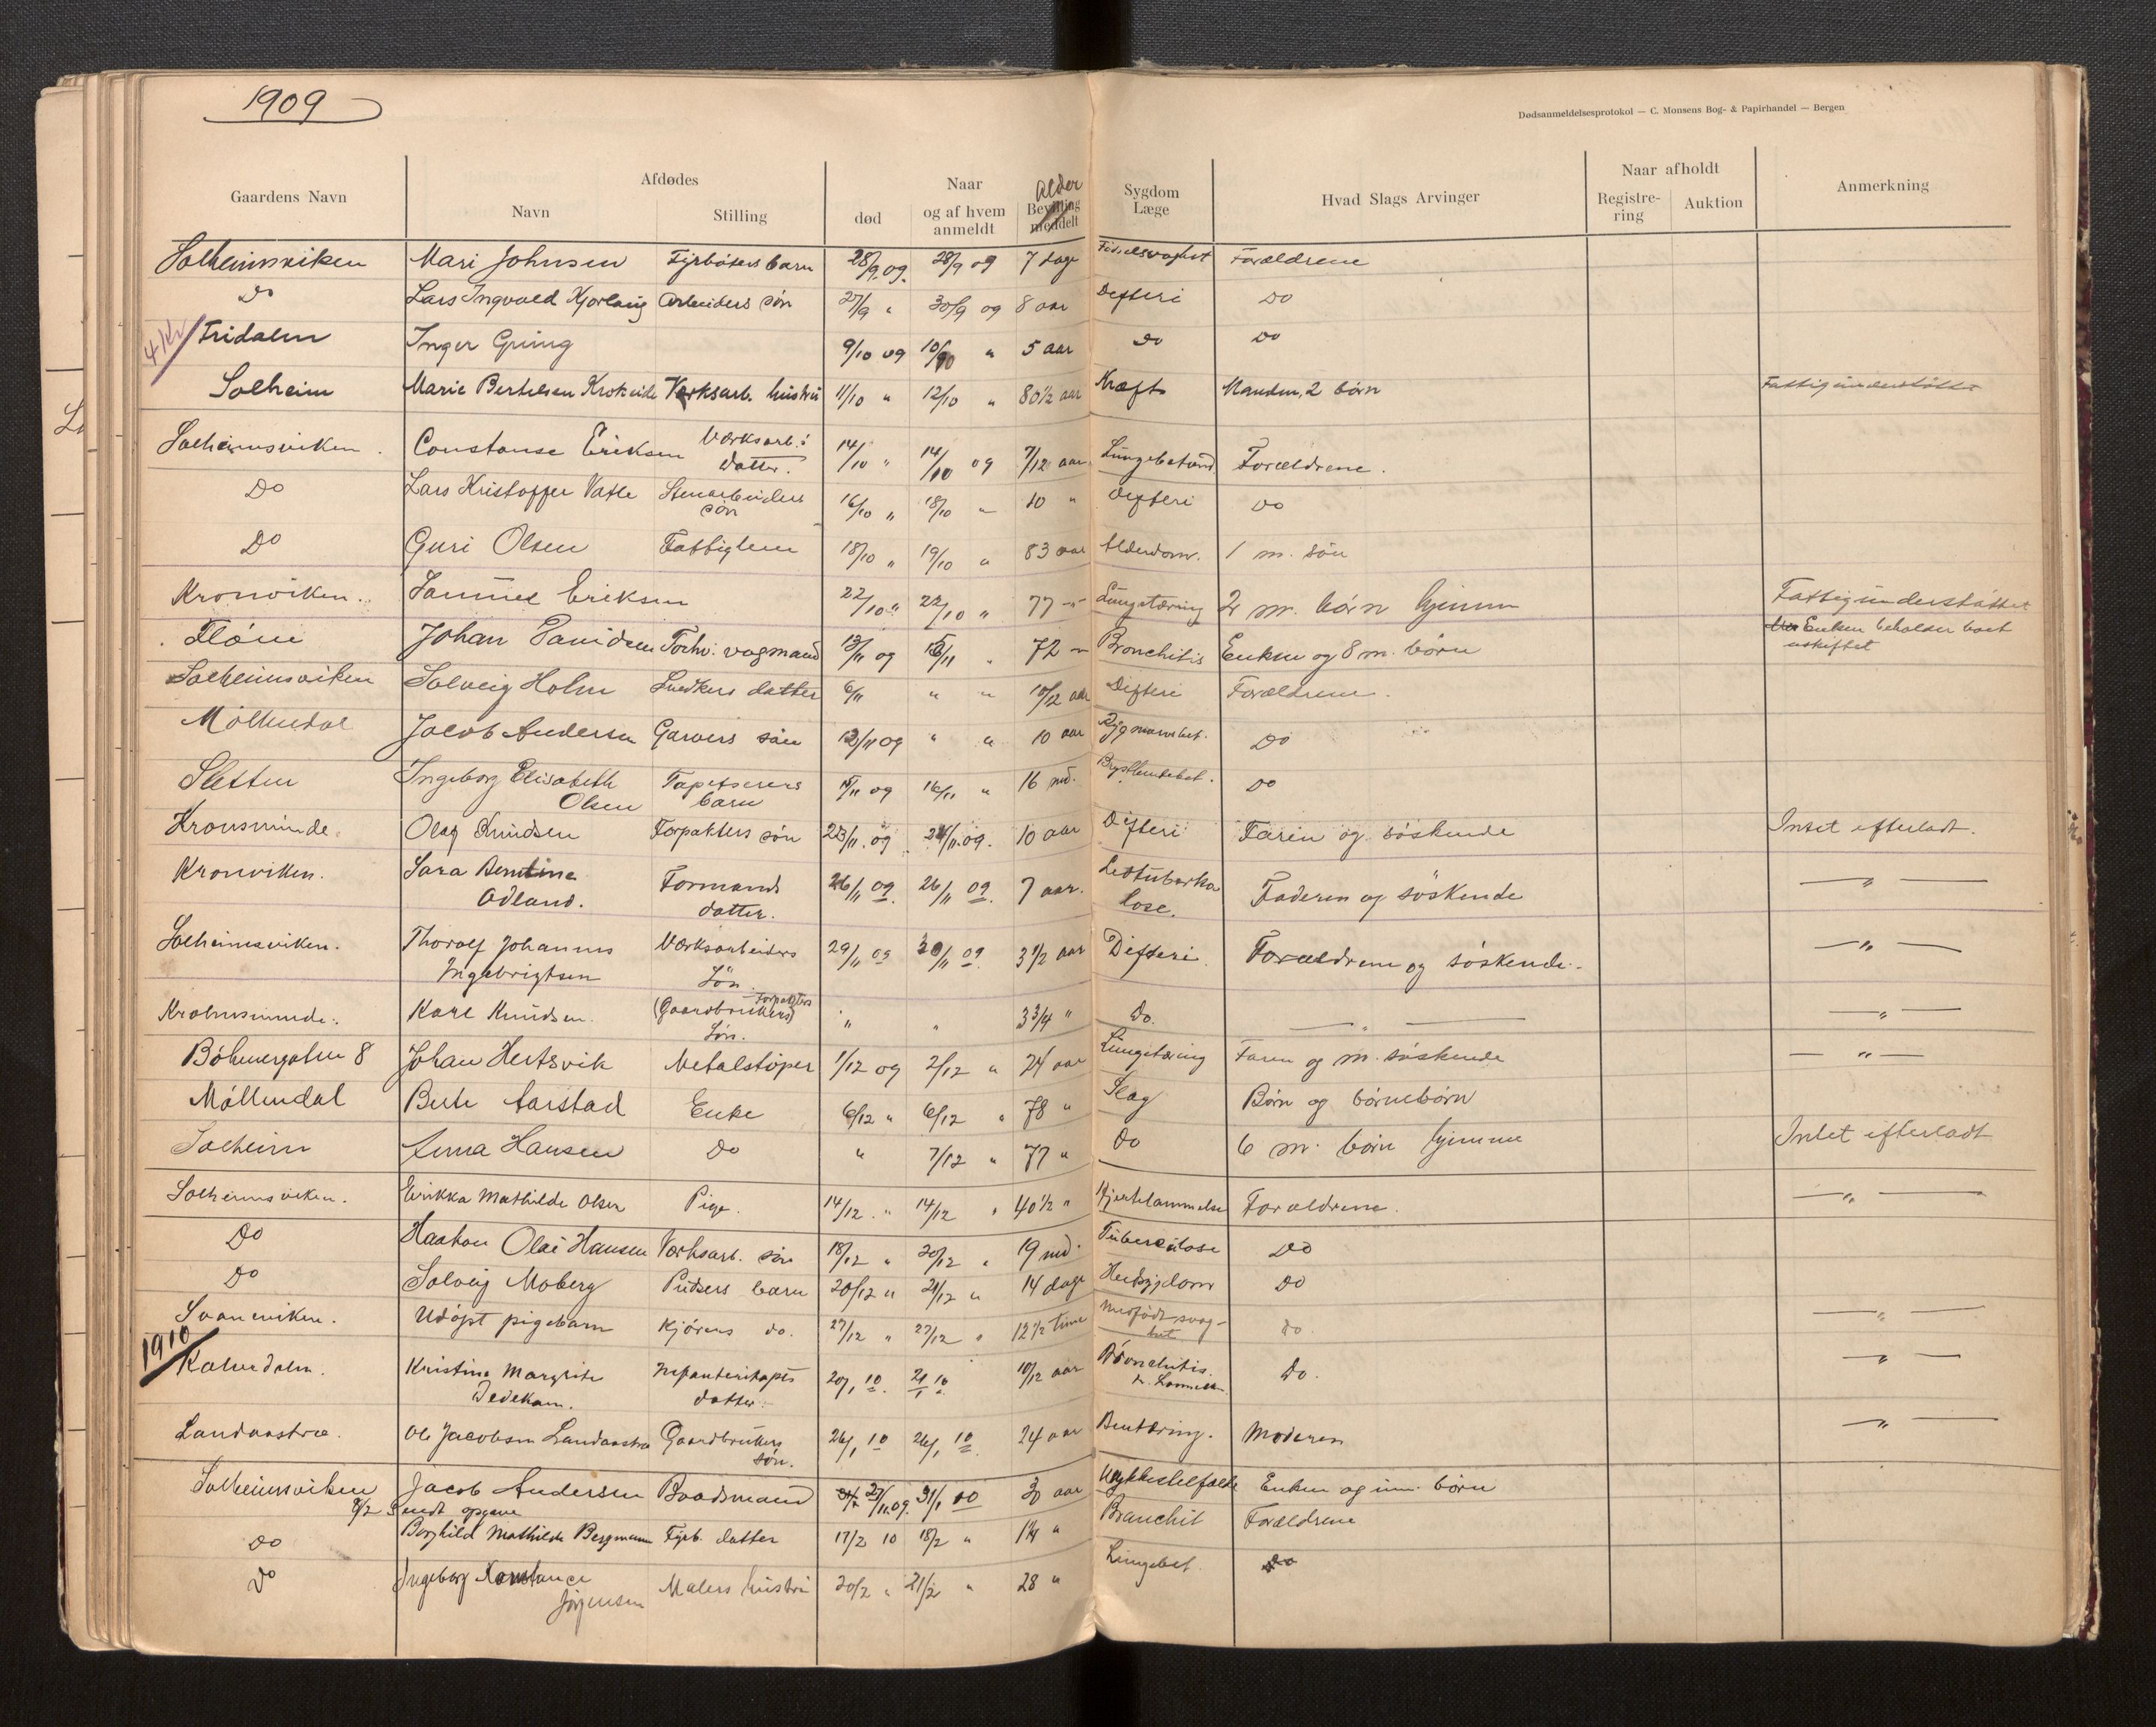 1909
Dødsanmeldelsesprotokol — C. Monsens Bog- & Papirhandel — Bergen
Gaardens Navn Afdødes Navn Stilling Naar død og af hvem anmeldt Bevilling meddelt Alder Sygdom Læge Hvad Slags Arvinger Naar afholdt Registrering Auktion Anmerkning
Solheimsviken Mari Johnsen Fyrbøters barn 28/9 09. 28/9 09 7 dage Fødselsvaghet Forældrene
Do Lars Ingvald Arbeiders søn 27/9 " 30/9 09 8 aar Defteri Do
4 Kr Fridalen Inger Gning 9/10 09 10/10 " 5 aar Do Do
Solheim Marie Bertelsen Krokeide Værksarb. hustru 11/10 " 12/10 " 80 1/2 aar Kræft Manden, 2 børn Fattigunderstøttet
Solheimsviken. Constanse Eriksen Værksarb.: datter. 14/10 " 14/10 09 7/12 aar Lungebetænd Forældrene.
Do Lars Kristoffer Vatle Stenarbeiders søn 16/10 " 18/10 " 10 " Defteri Do
Do Guri Olsen Fattiglem 18/10 " 19/10 " 83 aar Alderdom. 1 m. søn
Kronviken. Samuel Eriksen 22/10 " 22/10 " 77 " Lungetæring 2 m. børn hjemme Fattigunderstøttet
Fløen Johan Davidsen Forhv: vogmand 13/11 09 15/11 " 72 " Bronchitis Enken og 8 m. børn Enken beholder boet uskiftet
Solheimsviken Solveig Holm Snedkers datter 6/11 " " 10/12 aar Difteri Forældrene.
Møllendal Jacob Andersen Garvers søn 13/11 09 " " 10 aar Rygmarvsbet. Do
Sletten Ingeborg Elisabeth Olsen Tapetserers barn 15/11 09 16/11 " 16 md. Brysthindebet. Do
Kronsminde. Olaf Knudsen Forpakters søn 23/11. 09 24/11. 09. 10 aar Difteri Faren og søskende Intet efterladt.
Kronviken. Sara Berntine Ødland. Formands datter. 26/11 09. 26/11 09. 7 aar. Ledtuberkulose. Faderen og søskende — " —
Solheimsviken. Thorolf Johannes Ingebrigtsen Værksarbeiders Søn. 29/11 09 30/11 09. 3 1/2 aar Difteri. Forældrene og søskende. — " —
Krohnsminde. Kare Knudsen. (Gaardbrukers) Forpakters Søn. " " 3 3/4 " Do. — " — — " —
Bøhmergaten 8 Johan Hertsvik Metalstøper 1/12 09 2/12 " 24 aar Lungetæring Faren og m. søskende — " —
Møllendal Berte Aarstad Enke 6/12 " 6/12 " 78 " Slag Børn og børnebørn
Solheim Anna Hansen Do " 7/12 " 77 " Do 6 m. børn hjemme Intet efterladt
Solheimsviken. Erikka Mathilde Olsen Pige. 14/12. " 14/12 " 40 1/2 " Hjertelammelse Forældrene. — " —
Do Haakon Olai Hansen Værksarb. søn 18/12 " 20/12 " 19 md. Tuberculose Do
Do Solveig Moberg Pudsers barn 20/12 " 21/12 " 14 dage Do
Svaneviken. Udøpt pigebarn Kjørers do. 27/12 " 27/12 " 12 1/2 time Medfødt svaghet do. — " —
1910
Kalvedalen. Kristine Margrite Dedekam. Infanterikapts datter. 20/1 10. 21/1 10 10/12 aar Bronchitis. Do. — " —
Landaastræ. Ole Jacobsen Landaastræ Gaardbrukers søn. 26/1 10 26/1 10. 24 aar Bentæring. Moderen — " —
Solheimsviken Jacob Andersen Baadsmand 27/11. 09. 31/1 10 30 aar Ulykkestilfælde Enken og um. børn
8/2 Sendt opgave
Do Borghild Mathilde Bergmann Fyrb. datter 17/2 10 18/2 " 1 1/4 " Branchit Forældrene
Do Ingeborg Konstance Jørgensen Malers hustru 20/2 " 21/2 " 28 " Lungebet. Do